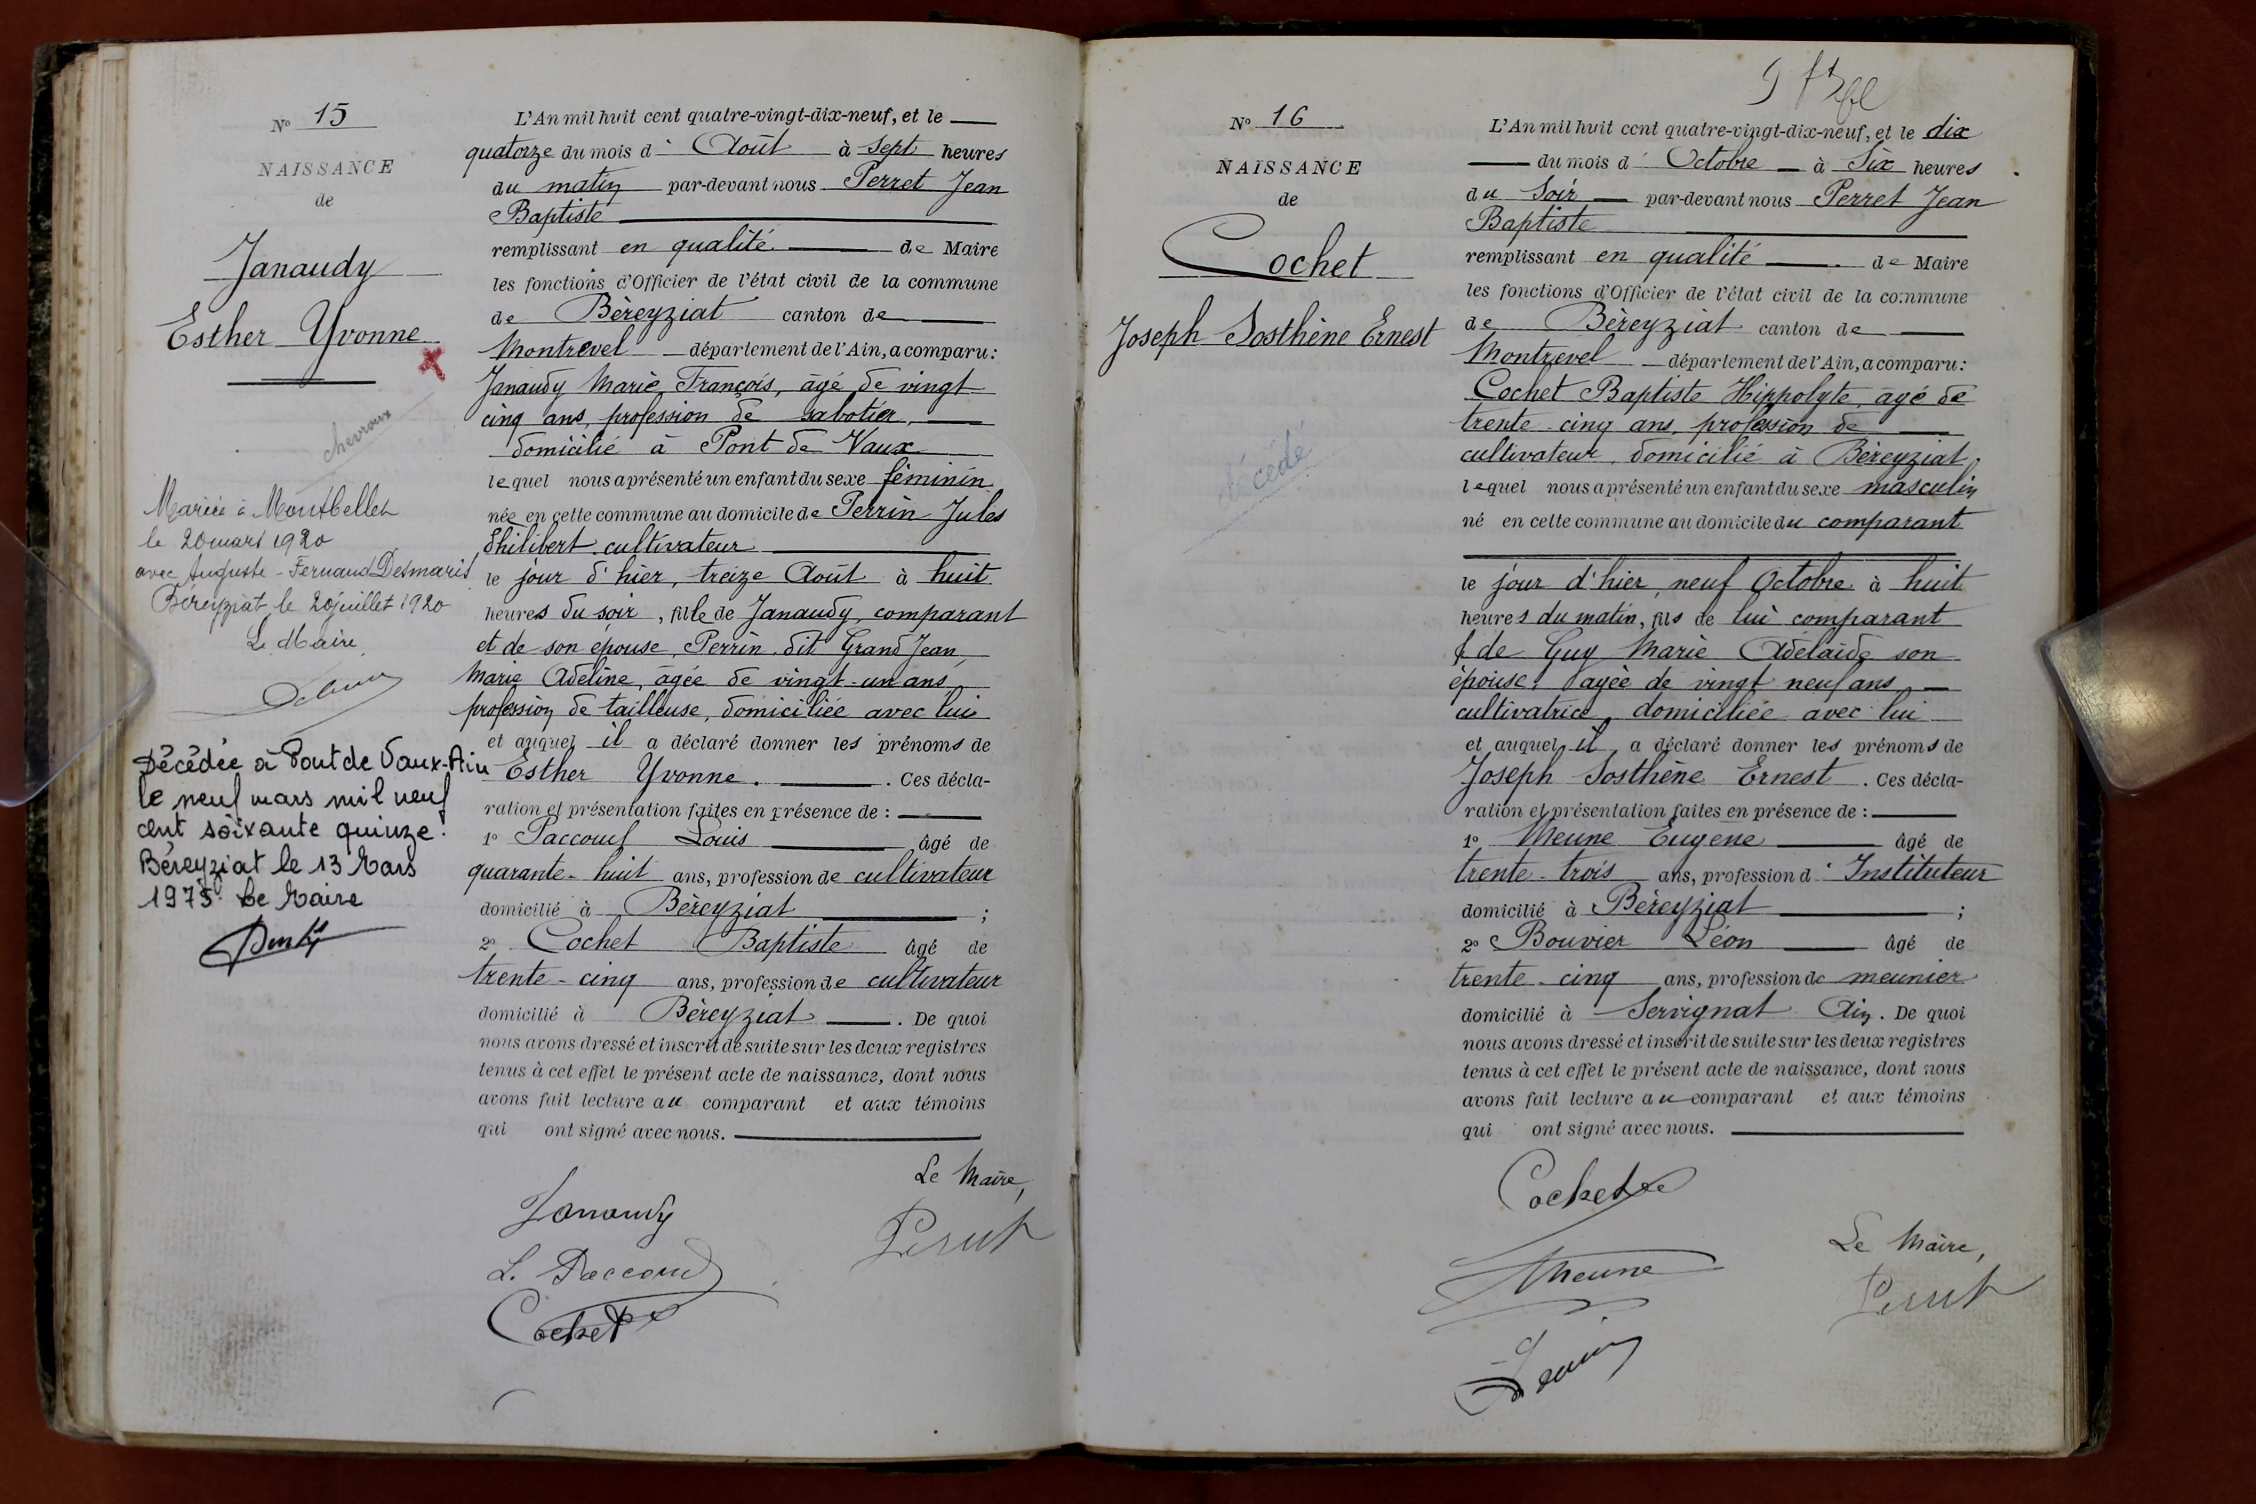 N° 15
NAISSANCE
de
Janaudy
Esther Yvonne
chevroux
Mariée à Montbellet
le 20 mars 1920
avec Auguste-Fernand Desmaris
Béreyziat, le 20 juillet 1920
Le Maire
Décédée à Pont de Vaux-Ain
le neuf mars mil neuf
cent soixante quinze.
Béreyziat le 13 Mars
1975. Le Maire
L'An mil huit cent quatre-vingt-dix-neuf, et le
quatorze du mois d' Août à sept heures
du matin par-devant nous Perret Jean
Baptiste
remplissant en qualité de Maire
les fonctions d'Officier de l'état civil de la commune
de Bèreyziat canton de
Montrevel département de l'Ain, a comparu:
Janaudy Marie François, âgé de vingt
cinq ans, profession de sabotier,
domicilié à Pont de Vaux
lequel nous a présenté un enfant du sexe féminin
née en cette commune au domicile de Perrin Jules
Philibert cultivateur
le jour d'hier, treize Août à huit
heures du soir, fille de Janaudy, comparant
et de son épouse, Perrin dit Grand Jean,
Marie Adeline, âgée de vingt-un ans,
profession de tailleuse, domiciliée avec lui
et auquel il a déclaré donner les prénoms de
Esther Yvonne. . Ces décla-
ration et présentation faites en présence de :
1° Paccoud Louis âgé de
quarante-huit ans, profession de cultivateur
domicilié à Bèreyziat ;
2° Cochet Baptiste âgé de
trente-cinq ans, profession de cultivateur
domicilié à Bèreyziat . De quoi
nous avons dressé et inscrit de suite sur les deux registres
tenus à cet effet le présent acte de naissance, dont nous
avons fait lecture au comparant et aux témoins
qui ont signé avec nous.
Le Maire,
Janaudy
Perret
L. Paccoud
Cochet
N° 16
NAISSANCE
de
Cochet
Joseph Sosthène Ernest
décédé
L'An mil huit cent quatre-vingt-dix-neuf, et le dix
du mois d' Octobre à Six heures
du Soir par-devant nous Perret Jean
Baptiste
remplissant en qualité de Maire
les fonctions d'Officier de l'état civil de la commune
de Bèreyziat canton de
Montrevel département de l'Ain, a comparu:
Cochet Baptiste Hippolyte, âgé de
trente-cinq ans, profession de
cultivateur, domicilié à Bèreyziat,
lequel nous a présenté un enfant du sexe masculin
né en cette commune au domicile du comparant
le jour d'hier, neuf Octobre à huit
heures du matin, fils de lui comparant
& de Guy Marie Adélaïde son
épouse, âgée de vingt neuf ans,
cultivatrice, domiciliée avec lui
et auquel il a déclaré donner les prénoms de
Joseph Sosthène Ernest . Ces décla-
ration et présentation faites en présence de :
1° Meune Eugène âgé de
trente-trois ans, profession d' Instituteur
domicilié à Bèreyziat ;
2° Bouvier Léon âgé de
trente-cinq ans, profession de meunier
domicilié à Servignat Ain. De quoi
nous avons dressé et inscrit de suite sur les deux registres
tenus à cet effet le présent acte de naissance, dont nous
avons fait lecture au comparant et aux témoins
qui ont signé avec nous.
Cochet
Le Maire,
Meune
Perret